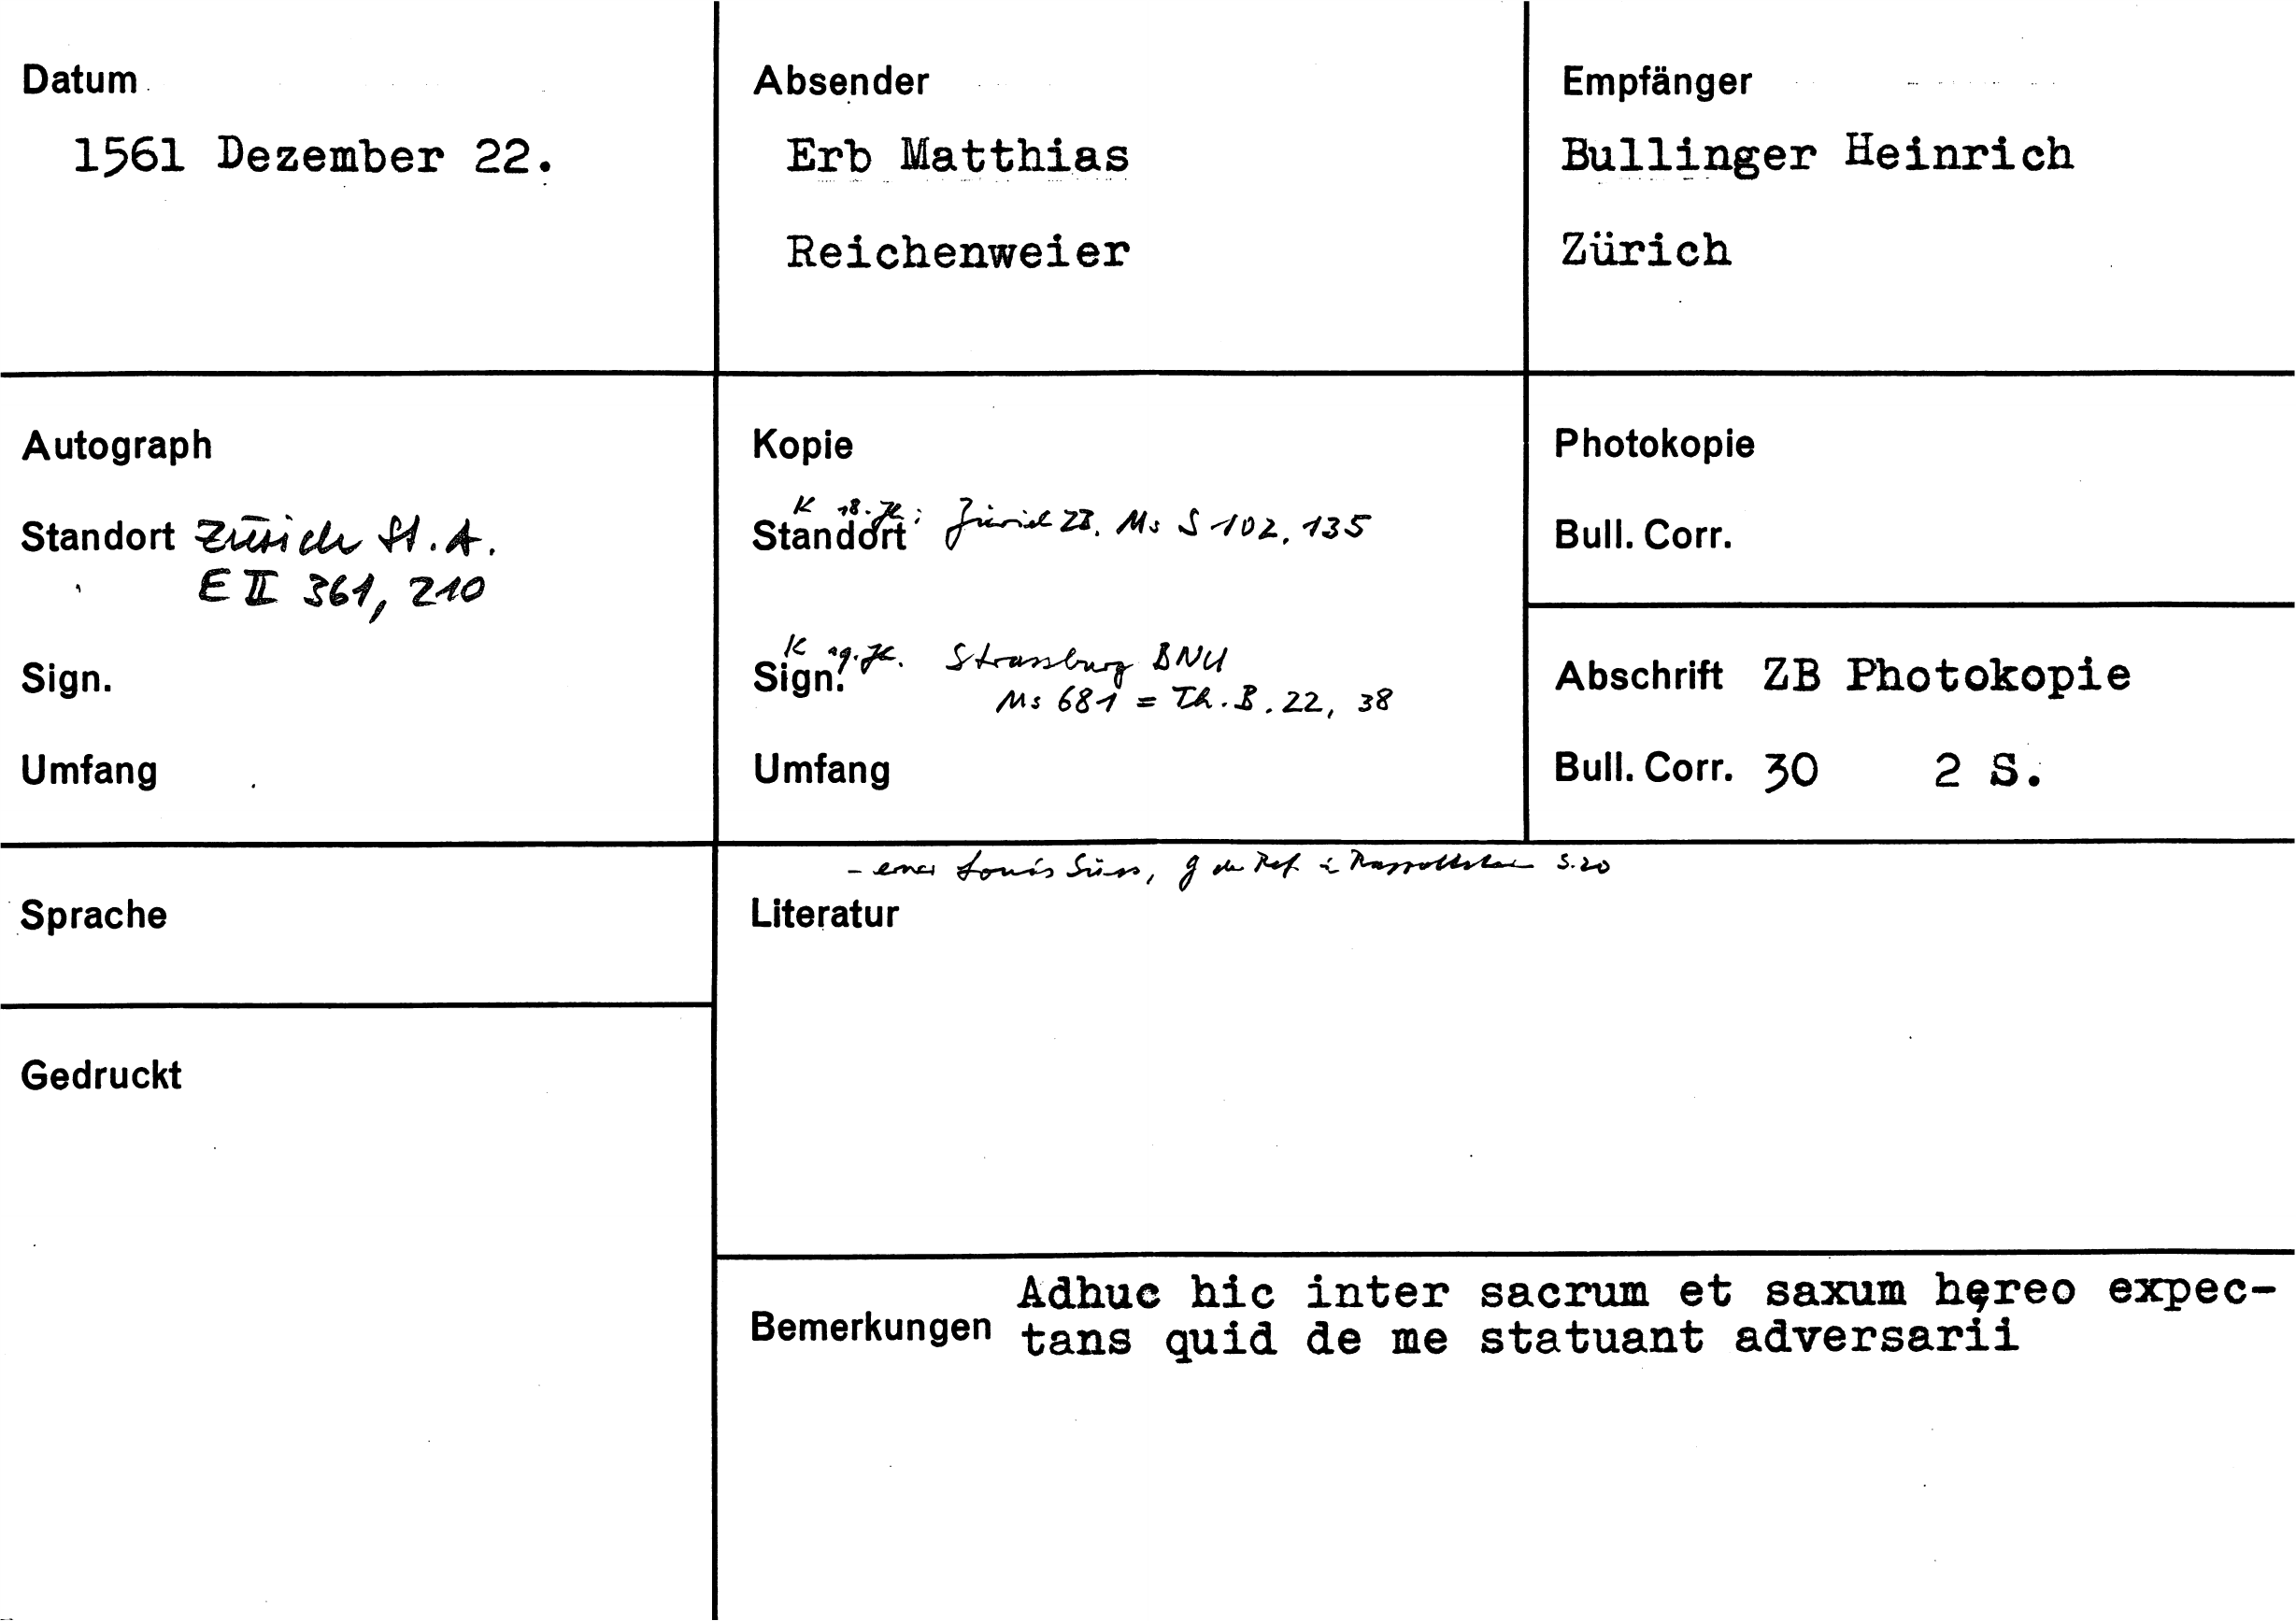 Datum
1561 Dezember 22.
Absender
Erb Matthias
Reichenweier
Empfänger
Bullinger Heinrich
Zürich
Autograph
Standort Zürich St. A.
E II 361, 210
Sign.
Umfang
Kopie
K 18. Jh.: Zürich ZB. Ms S 102, 135
Standort
K 19. Jh. Strassburg BNU
Sign.
Ms 681 = Th. B. 22, 38
Umfang
Photokopie
Bull. Corr.
Abschrift ZB Photokopie
Bull. Corr. 30 2 S.
Sprache
Gedruckt
Louis Süss, G der Ref. S. 20
Literatur
Bemerkungen
Adhuc hic inter sacrum et saxum hęreo expec-
tans quid de me statuant adversarii